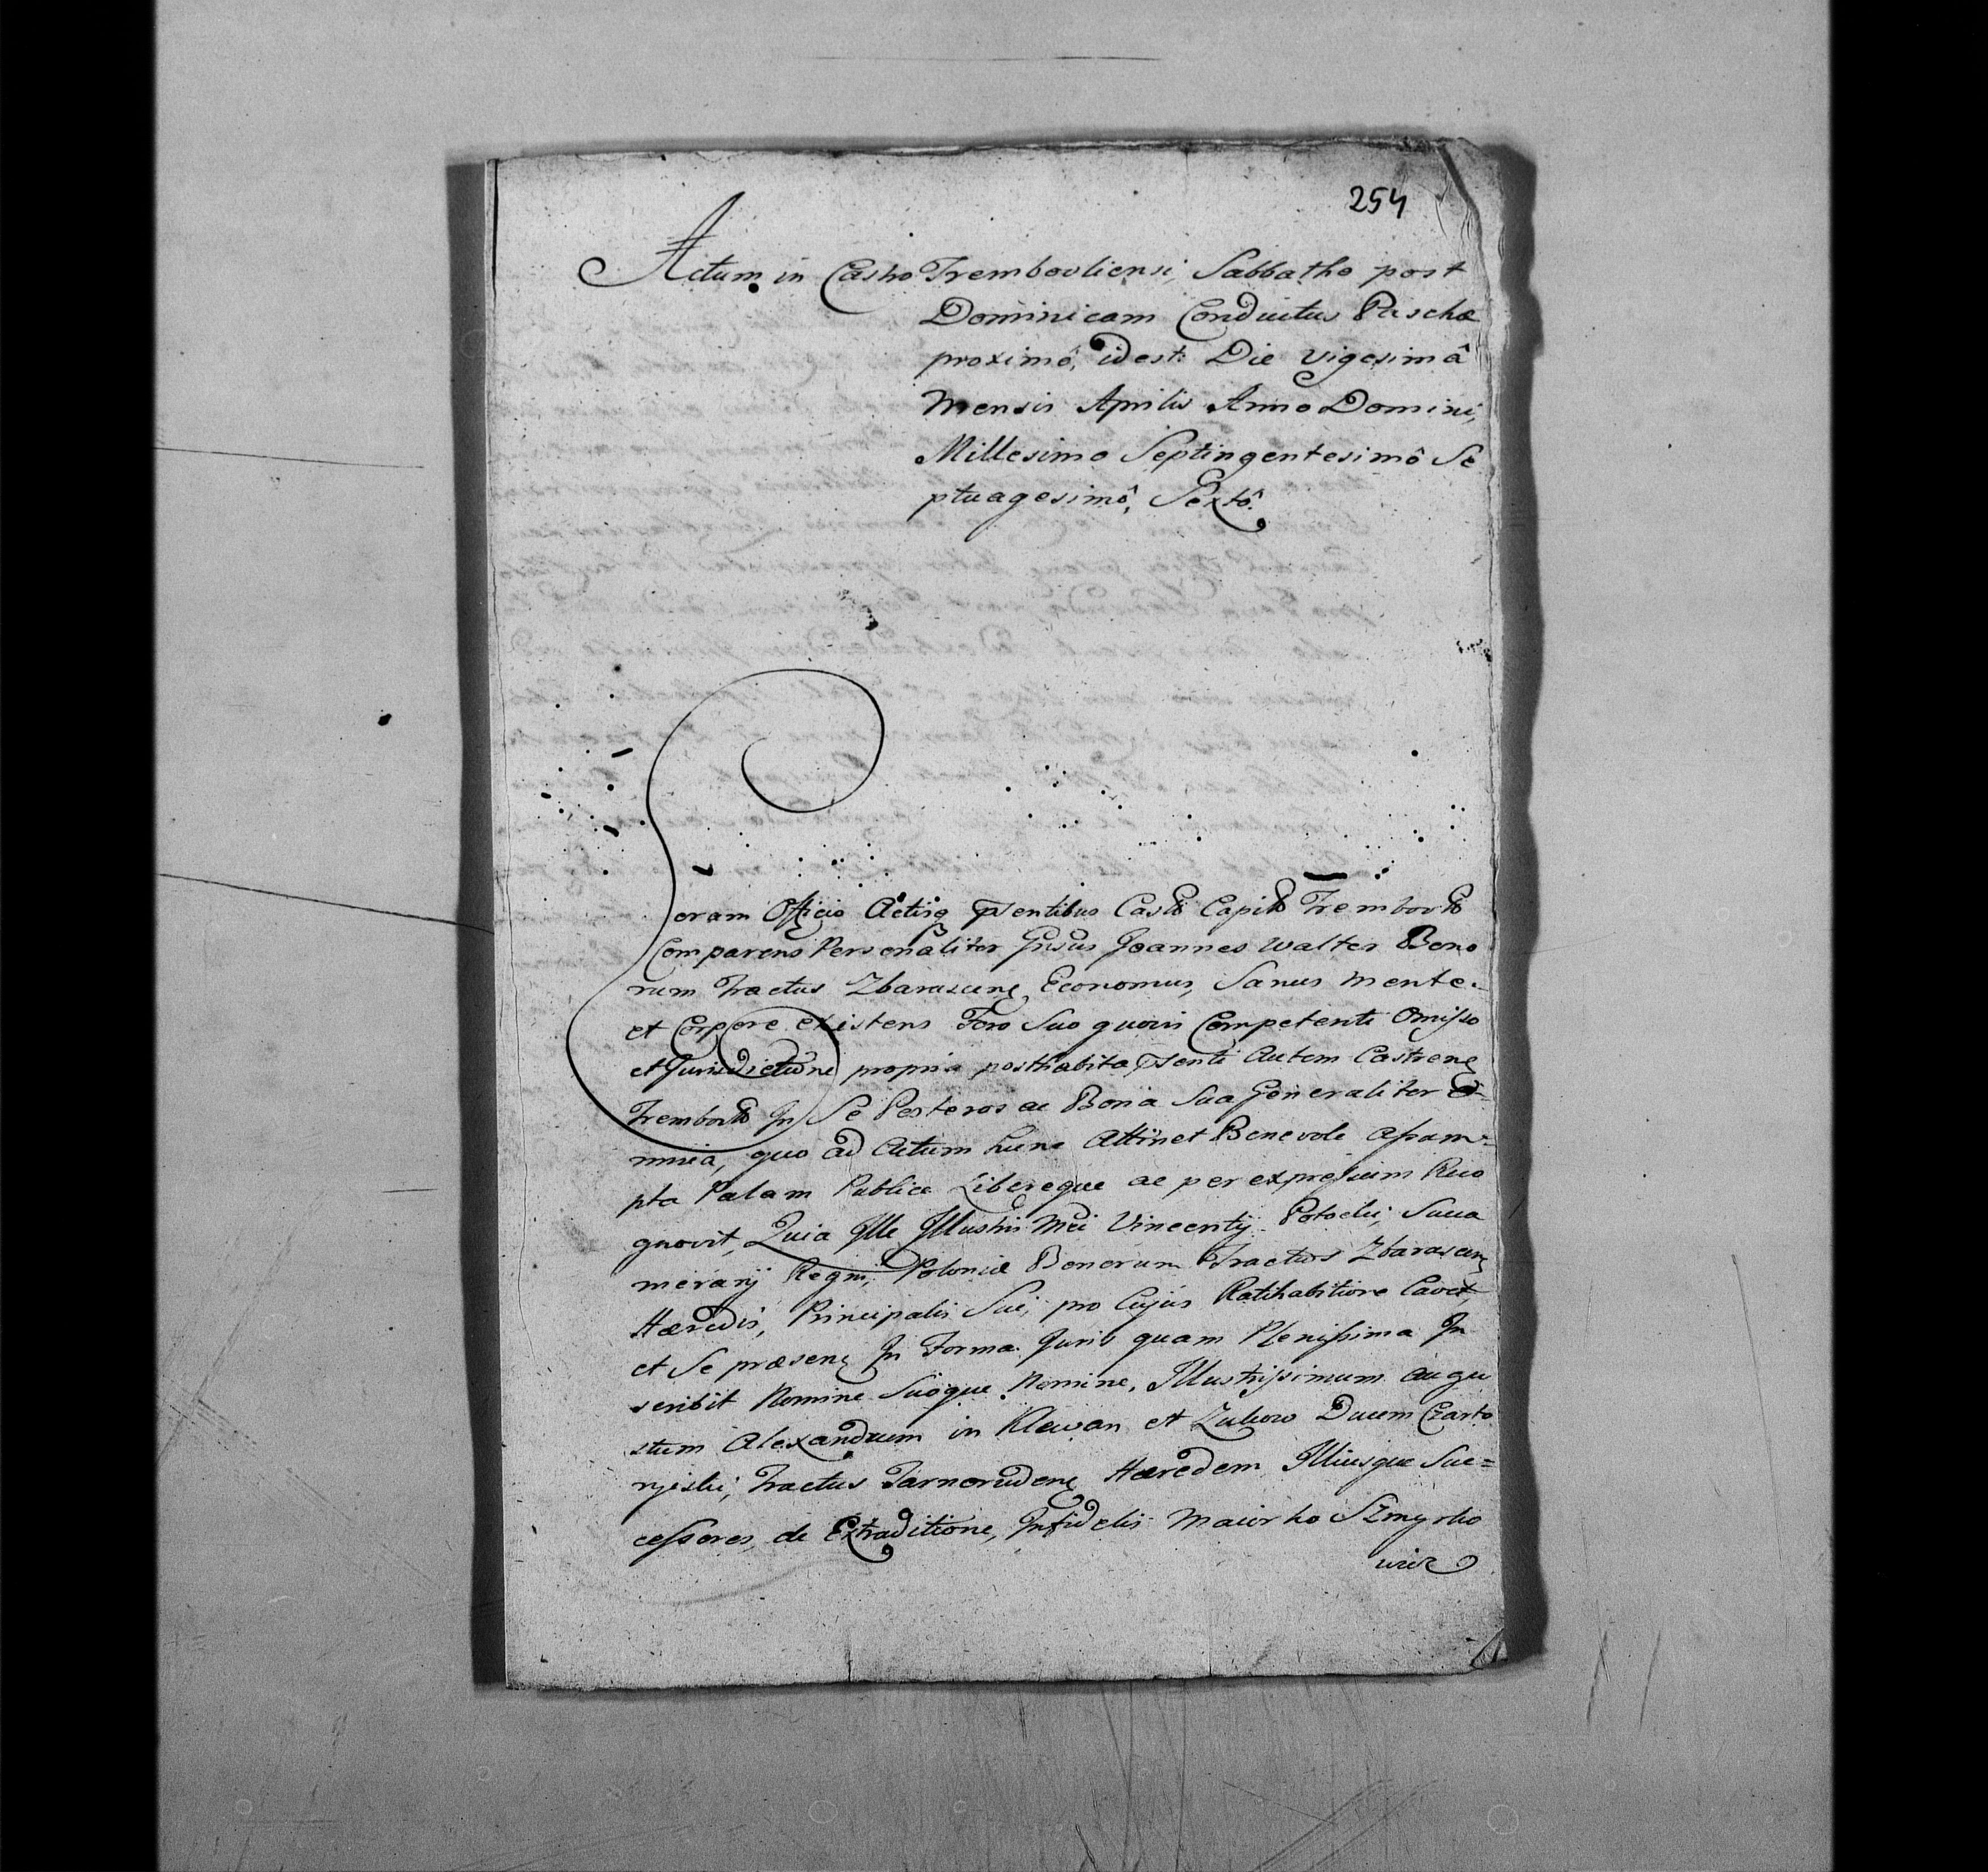 254
Actum in Castro Trembovliensi, Sabbatho post
Dominicam Conductus Paschæ
proximô, idest: Die vigesimâ
Mensis Aprilis Anno Domini,
Millesimo Septingentesimô Se
ptuagesimô, Sextô.
Coram Officio Actisq
Comparens Personaliter Joannes Walter Bono
rum Tractus Zbarascens Economus, Sanus mente.
et Corpore existens Foro Suo quovis Competenti Omisso
et Jurisdictione propria posthabita psenti Autem Castrens
In Se Posteros ac Bona Sua Generaliter O
mnia, quo ad Actum hunc Attinet Benevole assum-
pta Palam Publice Libereque ac per expressum Reco
gnovit, Quia Ille Illustris Mci Vincentij Potocki, Succa
merarij Regni, Poloniæ Bonorum Tractus Zbarascens
Hæredis, Principalis Sui, pro Cujus Ratihabitione Cavet,
et Se præsens In Forma Juris quam Plenissima In
scribit Nomine Suoque Nomine, Illustrissimum Augu
stum Alexandrum in Klewan et Zukow Ducem Czarto
ryiski, Tractus Tarnorudens Hæredem Illiusque Suc=
cessores, de Extraditione, Infidelis Maiorko Szmyrko